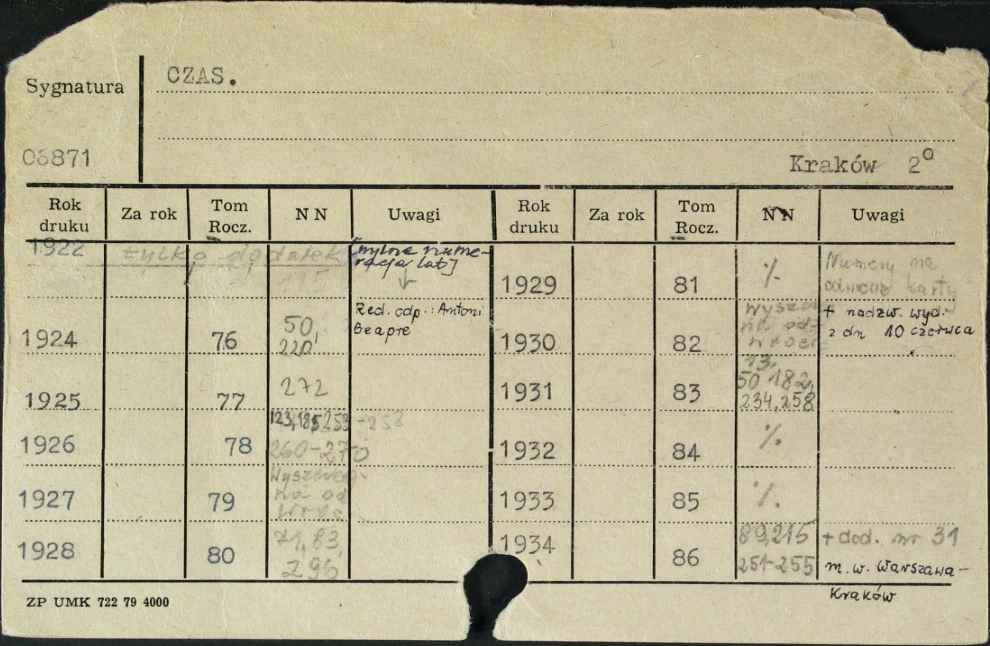 Sygnatura
CZAS.
03871
Kraków 2°
Rok druku Za rok Tom Rocz. NN Uwagi Rok druku Za rok Tom Rocz. NN Uwagi
1922 tylko dodatek [mylna nume-
racja lat]
1929 81 ./. Numery na
odwrocie karty
Red. odp.: Antoni
Beapre
1924 76 50,
220,
1930 82 na od-
wrocie + nadzw. wyd.
z dn 10 czerwca
1925 77 272
1931 83 13,
50 182,
234,258
1926 78 123,185,253-258
260-270
1932 84 ./.
1927 79 na od
1933 85 ./.
1928 80 71,83,
296
1934 86 89,215
251-255 + dod. nr 31
m.w. Warszawa-
Kraków
ZP UMK 722 79 4000